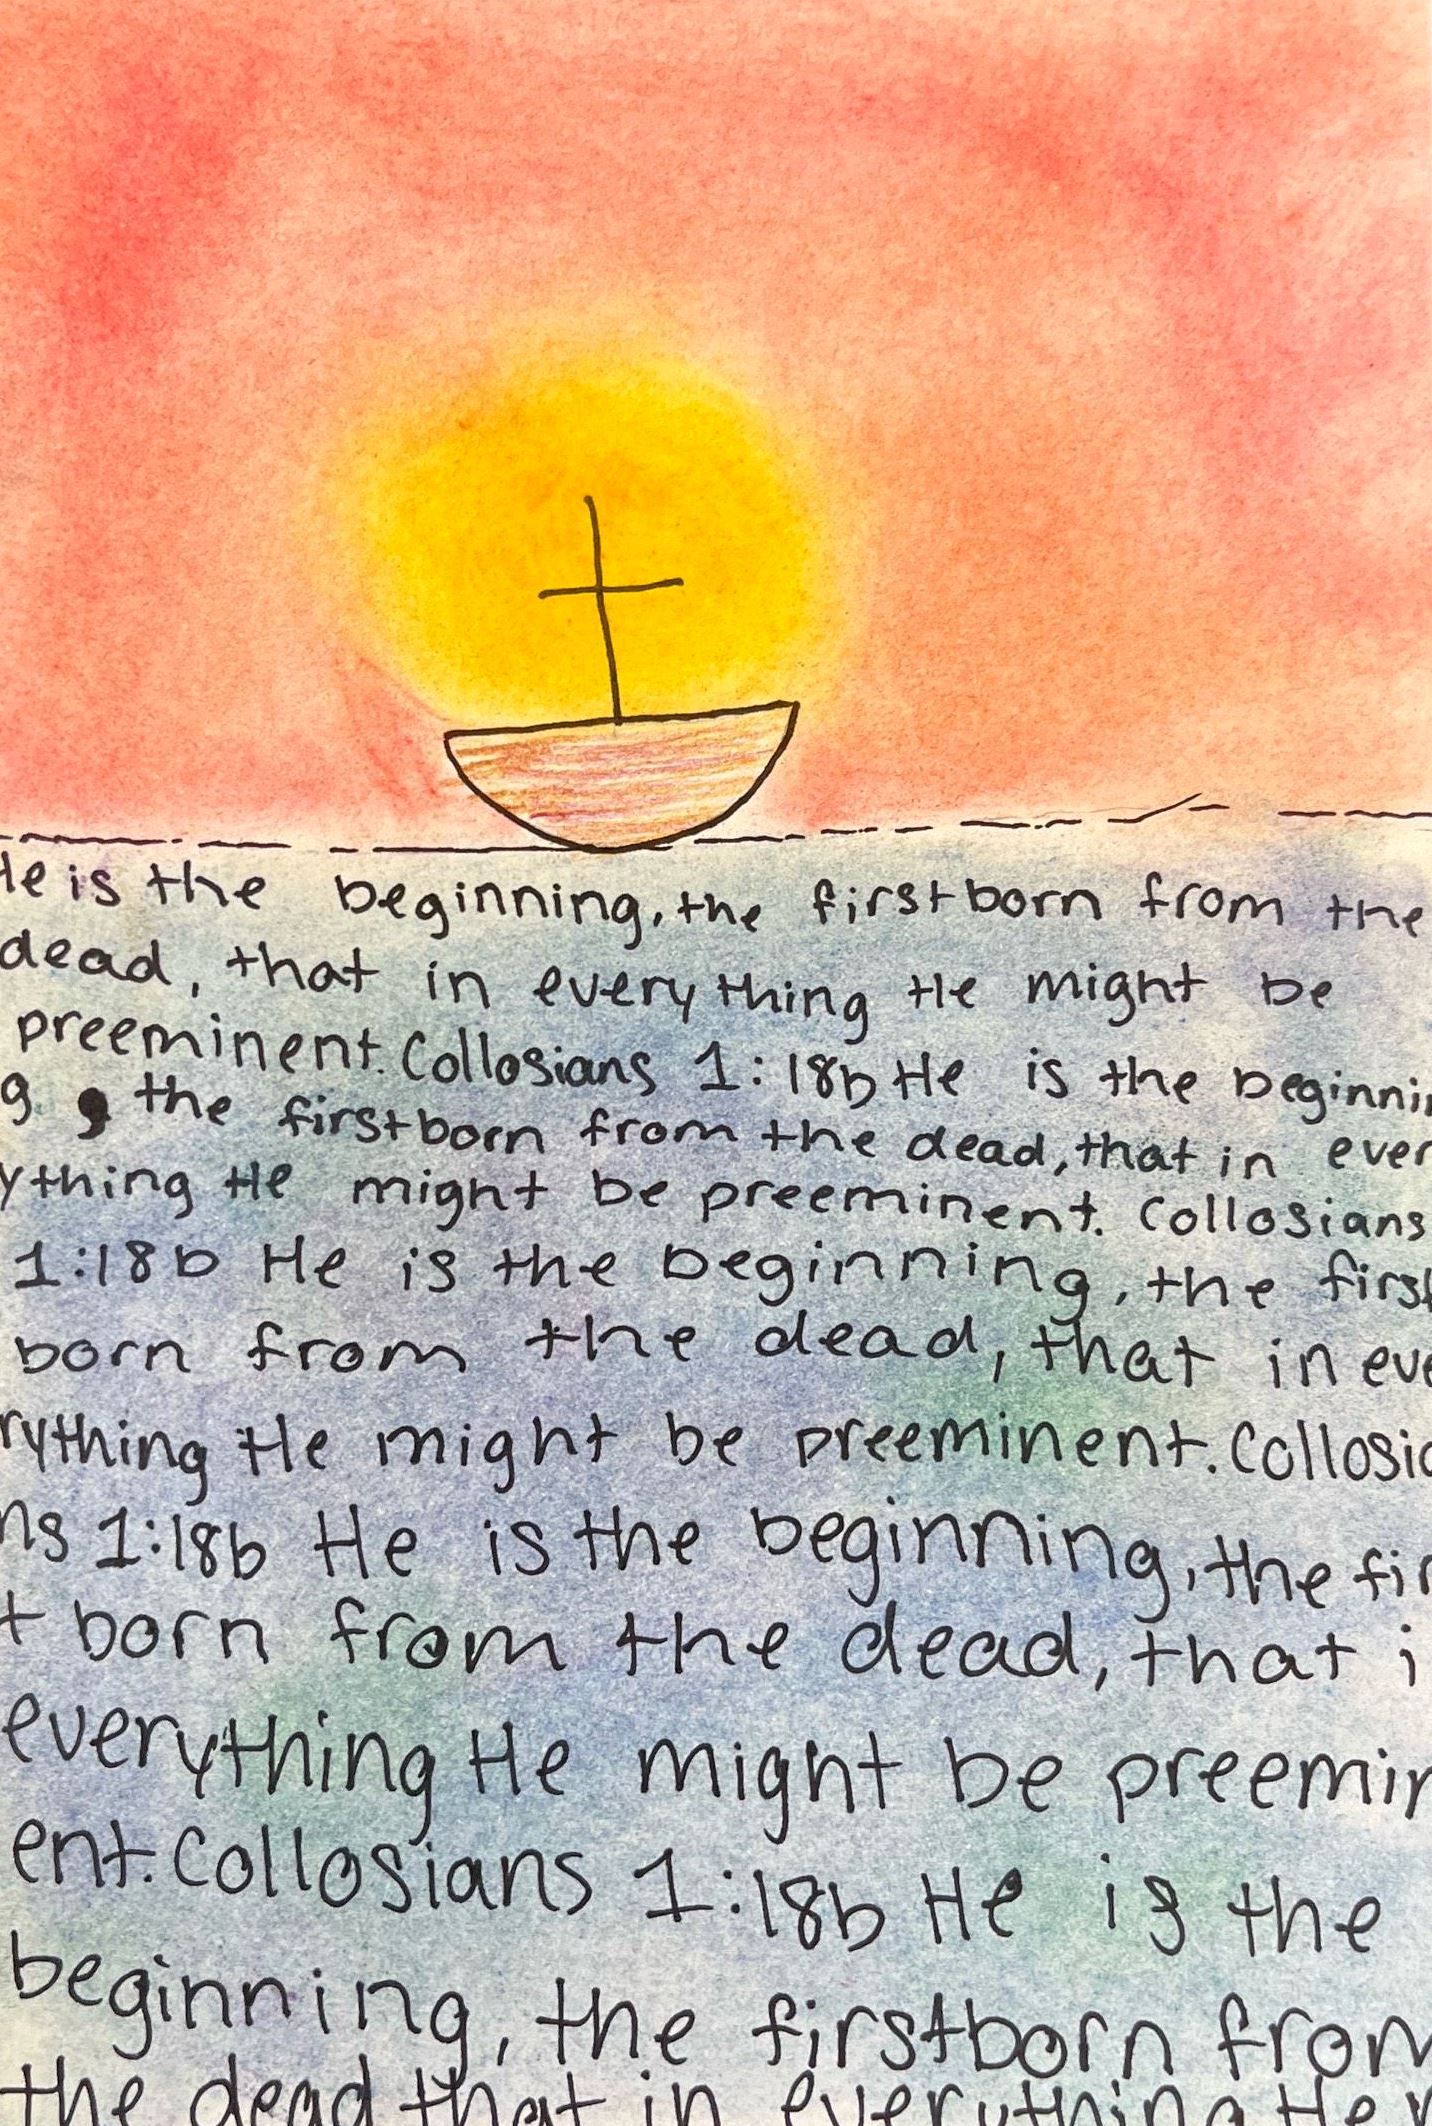 He is the beginning, the firstborn from the
dead, that in everything He might be
preeminent. Collosians 1:18b He is the beginnin
g, the firstborn from the dead, that in ever
ything He might be preeminent. Collosians
1:18b He is the beginning, the first
born from the dead, that in eve
rything He might be preeminent. Collosia
ns 1:18b He is the beginning, the fir
t born from the dead, that i
everything He might be preemin
ent. Collosians 1:18b He is the
beginning, the firstborn from
the dead that in everything He